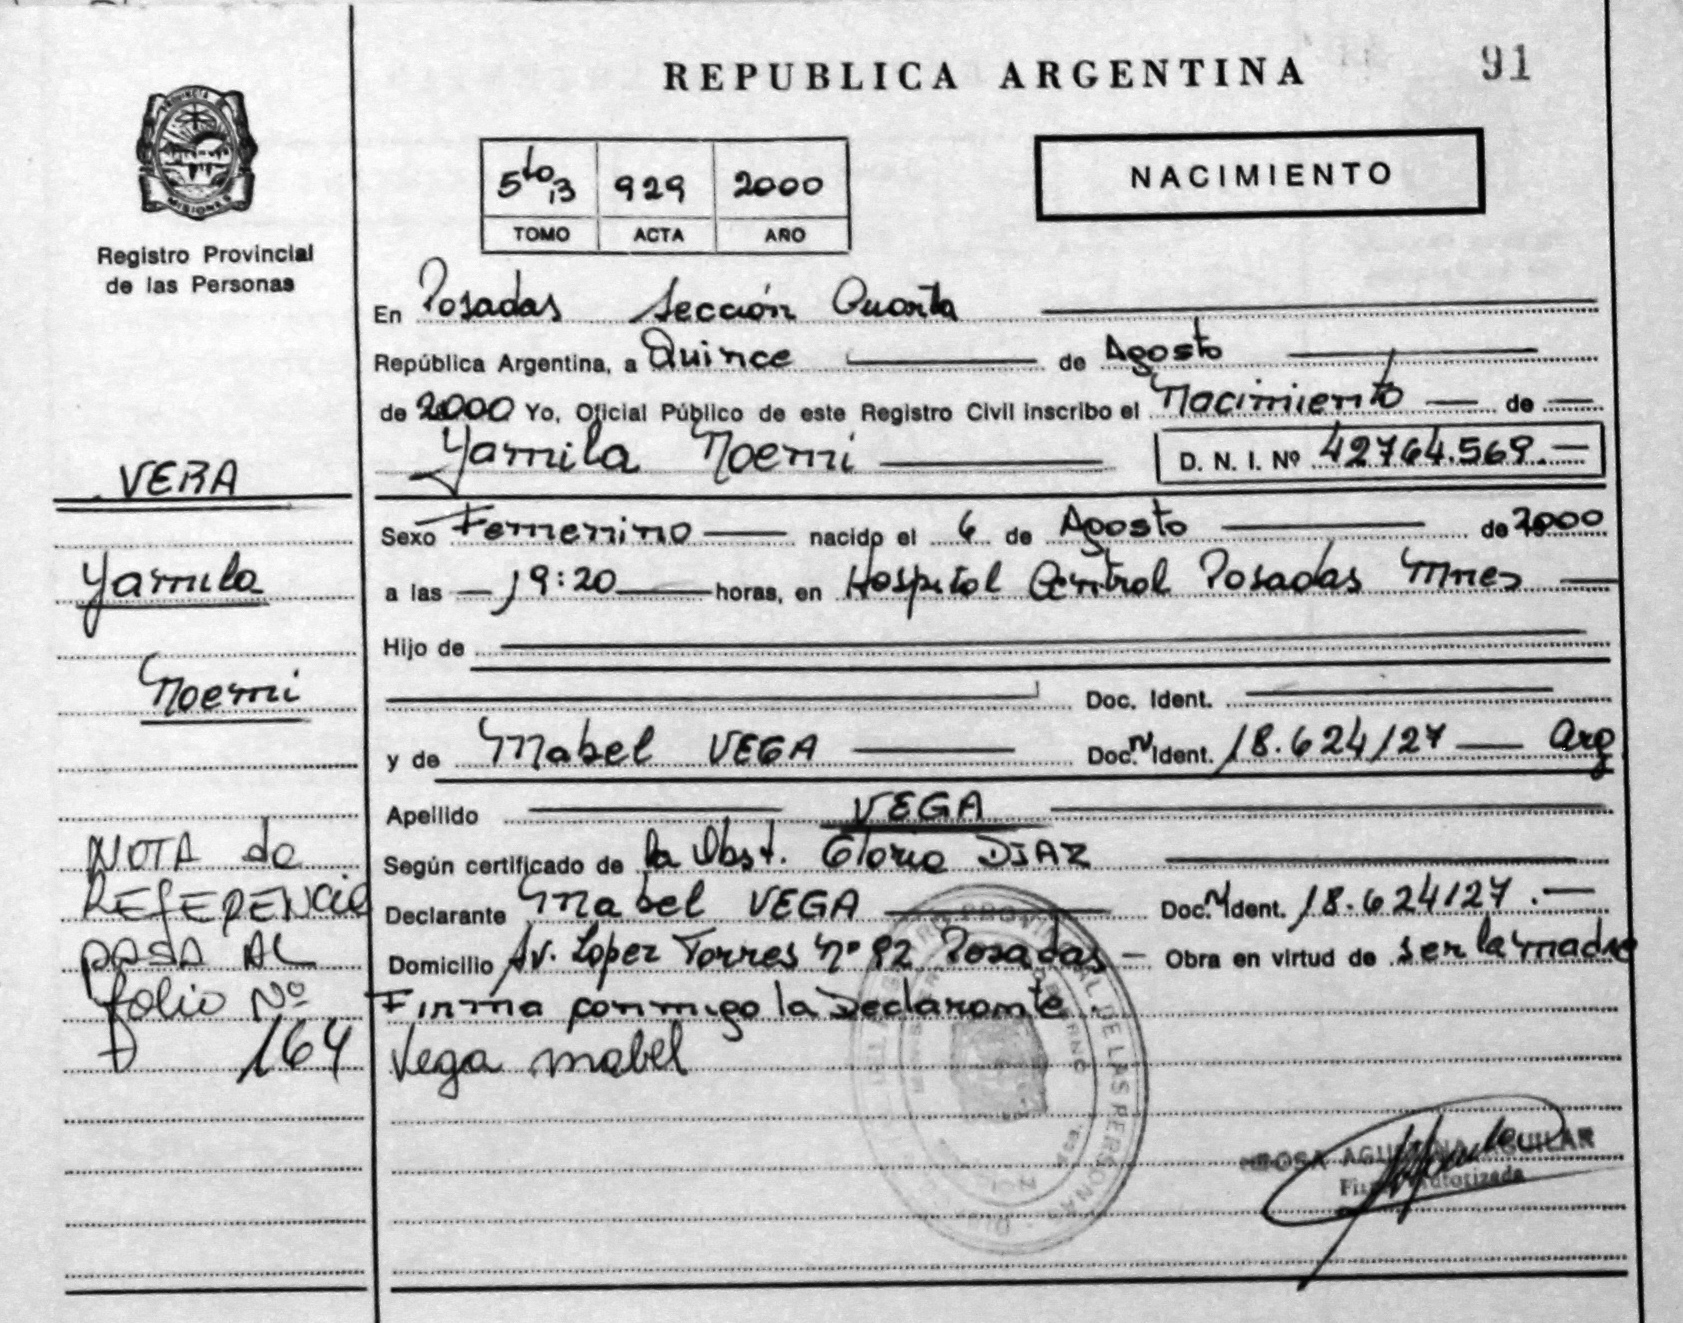 REPUBLICA ARGENTINA
91
PROVINCIA DE
MISIONES
Registro Provincial
de las Personas
5to 13 929 2000
TOMO ACTA AÑO
NACIMIENTO
En Posadas Sección Cuarta
República Argentina, a Quince de Agosto
de 2000 Yo, Oficial Público de este Registro Civil inscribo el Nacimiento de
Yamila Noemi D. N. I. Nº 42764.569.
VERA
Yamila
Noemi
Sexo Femenino nacido el 6 de Agosto de 2000
a las 19:20 horas, en Hospital Central Posadas Mnes
Hijo de
Doc. Ident.
y de Mabel VEGA Doc. N Ident. 18.624127 Arg
Apellido VEGA
Según certificado de la Obst. Gloria DIAZ
Declarante Mabel VEGA Doc. N Ident. 18.624127.
Domicilio Av. Lopez Torres Nº 92 Posadas Obra en virtud de ser la madre
Firma conmigo la Declarante
Vega mabel
NOTA de
REFERENCIA
PASA AL
folio Nº
164
ROSA AGUSTINA AGUILAR
Firma Autorizada